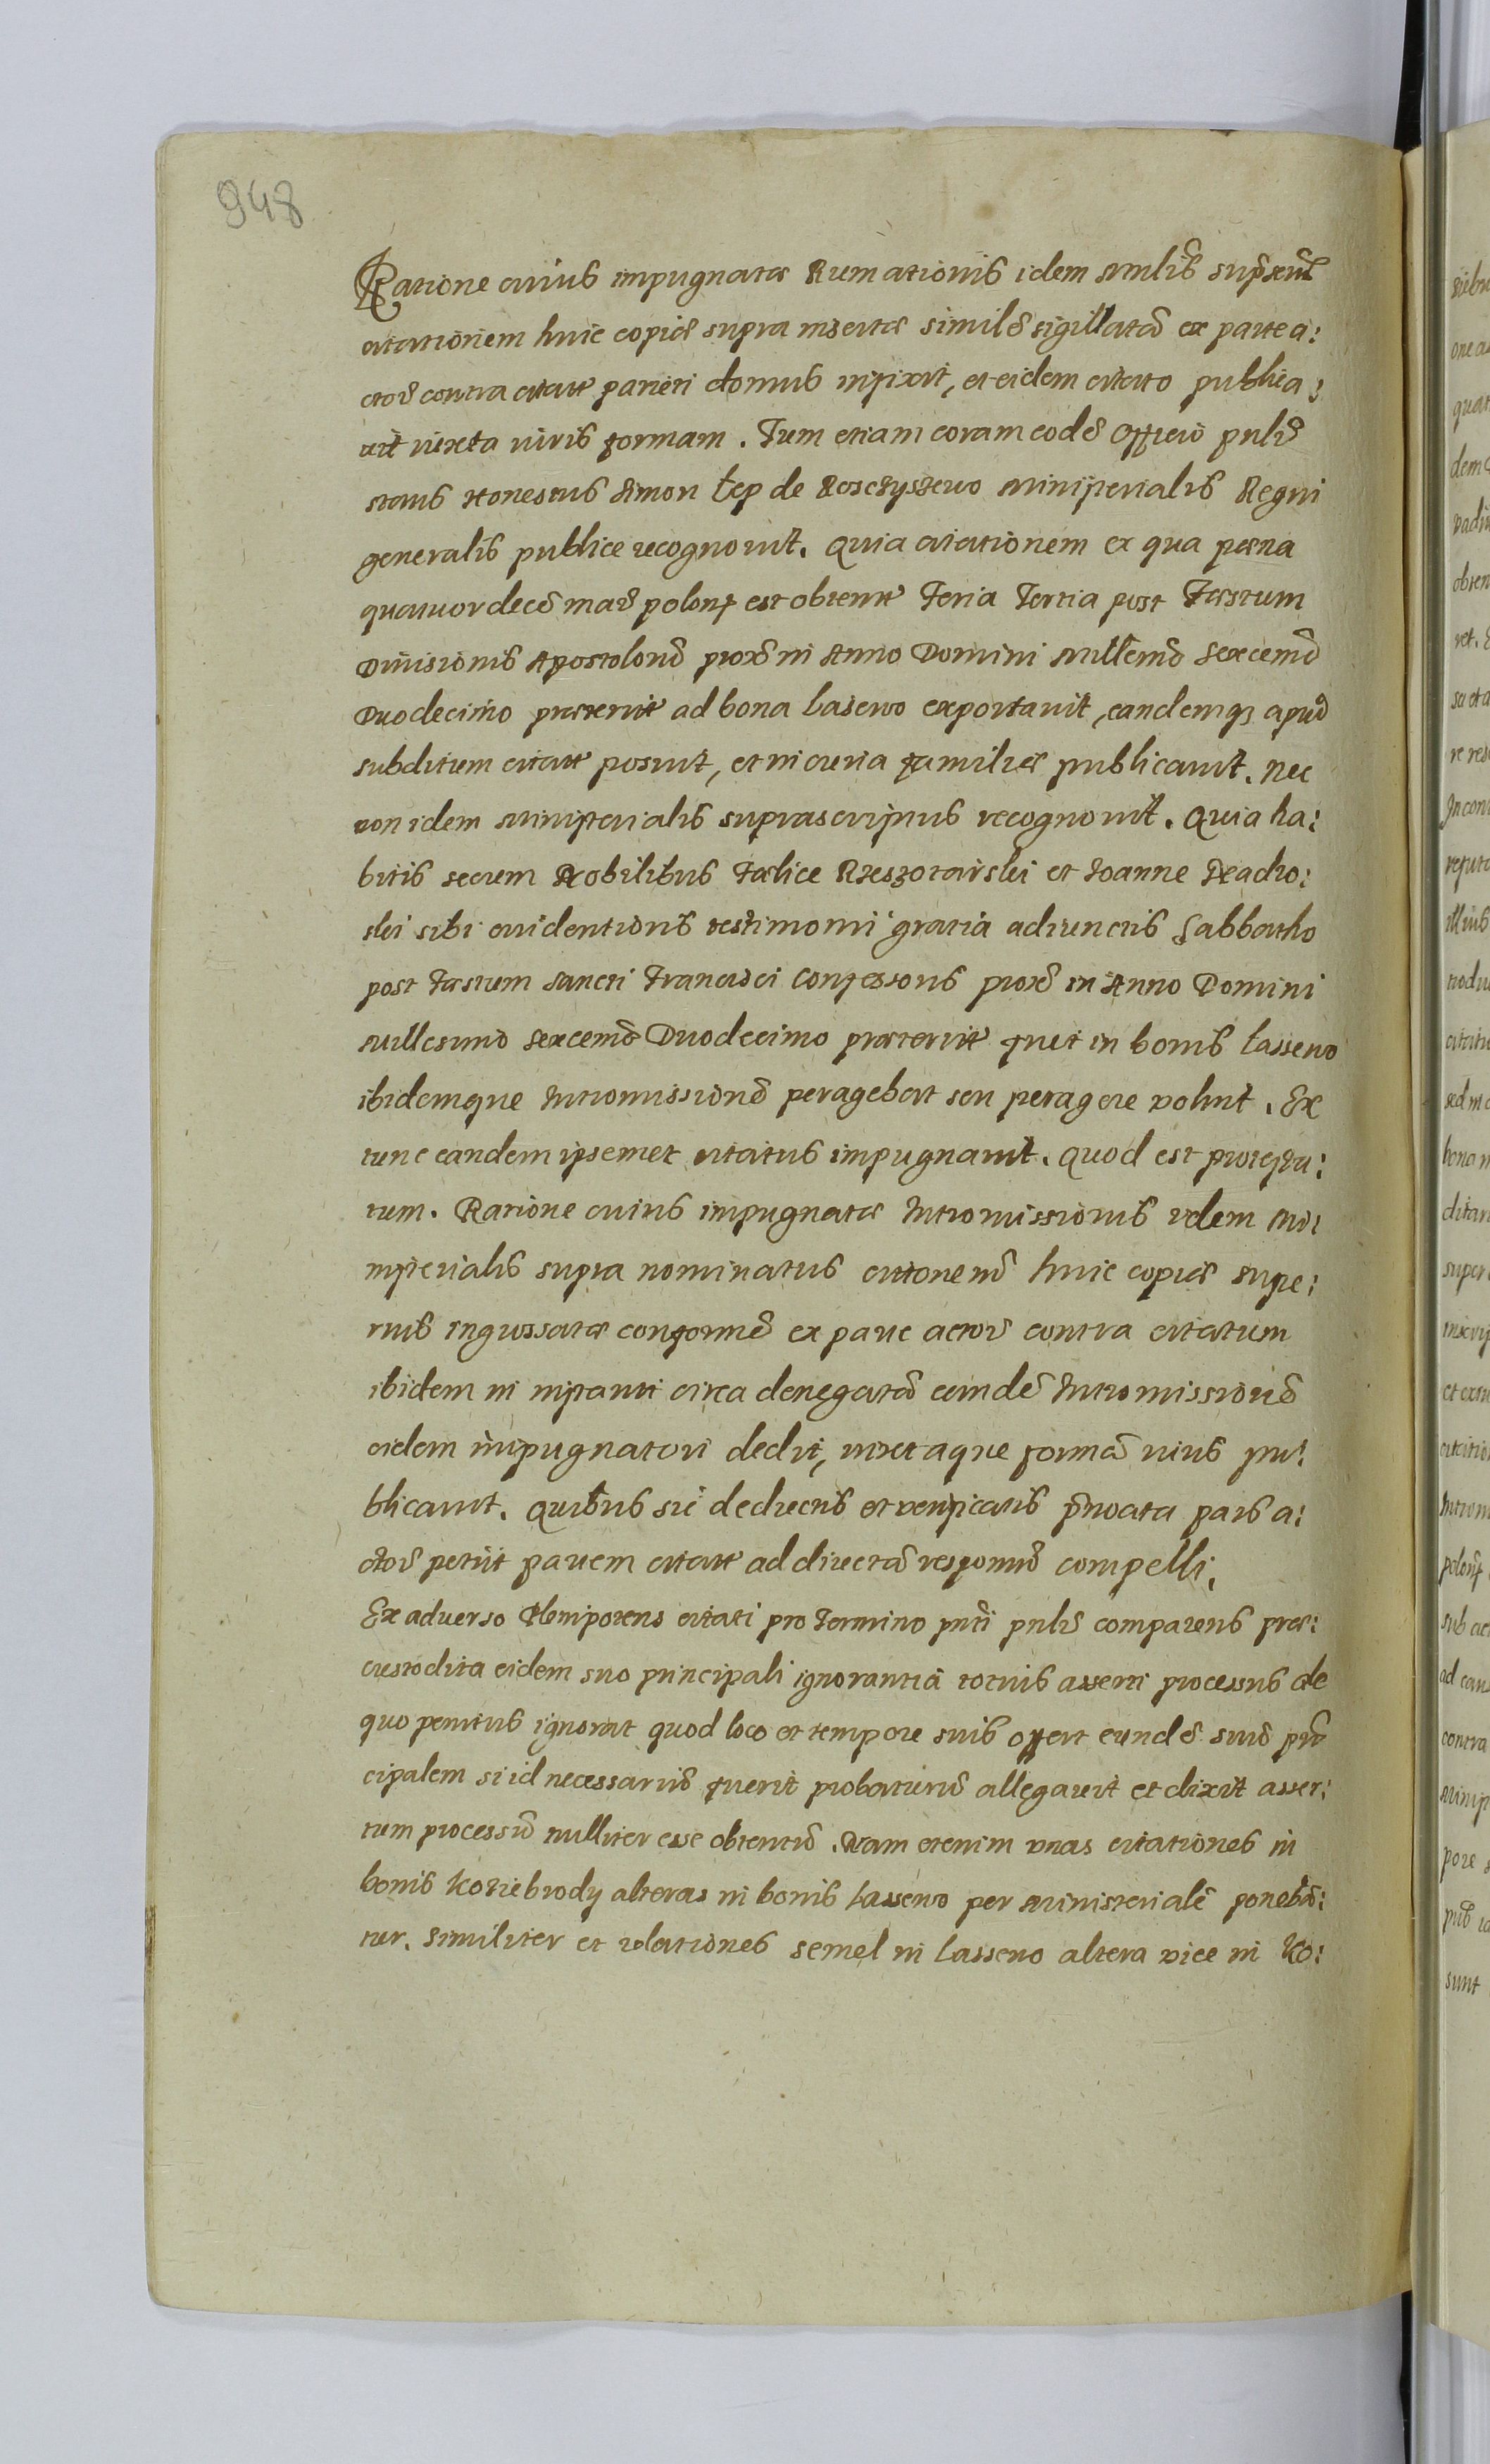 948
Ratione cuius impugnatæ Rumationis idem Mnlis supscrũt
citationem huic copiæ supra insertæ similẽ sigillatã ex parte a:
ctorẽ contra citatt parieti domus infixit, et eidem citato publica:
vit iuxta iuris formam. Tum etiam coram eodẽ Officio pnlr̃
stans Honestus Simon Łep de Miniserialis Regni
generalis publice recognovit. Quia citationem ex qua pœna
quatuordecẽ mar̃ polonֿ est obtentt Feria Tertia post Fæstum
Divisionis Apostolorũ proxẽ in Anno Domini Millẽmo Sexcemõ
Duodecimo præteritt ad bona Lasewo exportavit, eandemqꝫ apud
subditum citatt posuit, et in curia familiæ publicavit. Nec
non idem Ministerialis suprascriptus recognovit. Quia ha:
bitis secum Nobilibus Fælice Rzeszotarski et Joanne Nadro:
ski sibi evidentioris testimonii gratia adiunctis Sabbatho
post Fæstum Sancti Francisci Confessoris proxẽ in Anno Domini
Millesimo Sexcemõ Duodecimo præteritt fuit in bonis Lassewo
ibidemque Intromissionẽ peragebat seu peragere voluit. Ex
tunc eandem ipsemet citatus impugnavit. Quod est protesta:
tum. Ratione cuius impugnatæ Intromissionis idem Mi:
nisterialis supra nominatus citoneḿ huic copiæ supe:
rius ingrossatæ conformẽ ex parte actorẽ contra citatum
ibidem in instanti circa denegatã eiusdẽ Intromissionẽ
eidem impugnatori dedit, iuxtaque formã iuris pu:
blicavit. Quibus sic deductis et verificatis p̃noata pars a:
ctorẽ petiit partem citatt ad directã responsiõ compelli.
Ex adverso Plenipotens citati pro Termino pñti pnlr̃ comparens præ:
custodita eidem suo principali ignorantia totius asserti processus de
quo penitus ignorat quod loco et tempore suis offert eundẽ suũ prin
cipalem si id necessariũ fuerit probaturũ allegavit et dixit asser:
tum processũ nulliter esse obtentũ. Nam etenim unas citationes in
bonis Koziebrody alteras in bonis Lassewo per Ministerialẽ ponebã:
tur. Similiter et relationes semel in Lassewo altera vice in Ko: